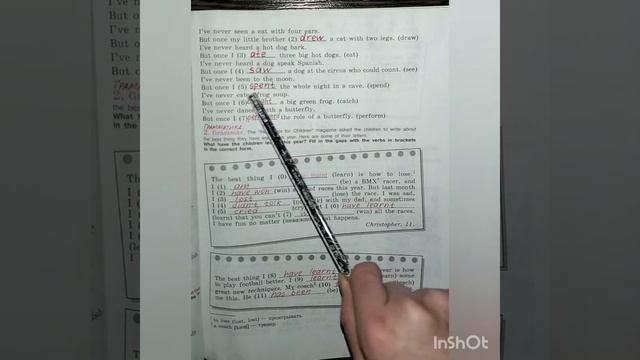 I've never seen a cat with four ears.
But once my little brother (2) drew a cat with two legs. (draw)
I've never heard a hot dog bark.
But once I (3) ate three big hot dogs. (eat)
I've never heard a dog speak Spanish.
But once I (4) saw a dog at the circus who could count. (see)
I've never been to the moon.
But once I (5) spent the whole night in a cave. (spend)
I've never frog soup.
But once I (6) a big green frog. (catch)
I've never with a butterfly.
But once I (7) the role of a butterfly. (perform)
Грамматика
2. Grammar. The for Children" magazine asked the children to write about
the best thing they have this year. Here are some of their letters.
What have the children this year? Fill in the gaps with the verbs in brackets
in the correct form.
The best thing I (0) (learn) is how to lose.¹
I (1) am (be) a BMX² racer, and
I (2) have won (win) a races this year. But last month
I (3) lost (lose) the race. I was sad,
I (4) didn't talk with my dad, and sometimes
I (5) cried (cry) I (6) have learnt
(learn) that you can't (7) (win) all the races.
I have fun no matter happens.
Christopher, 11.
The best thing I (8) have learnt year is how
to play football better. I (9) learnt (learn) some
great new techniques. My coach² (10) (teach)
me this. He (11) has been (be)
¹ to lose (lost, lost) — проигрывать
² a coach — тренер
InShOt